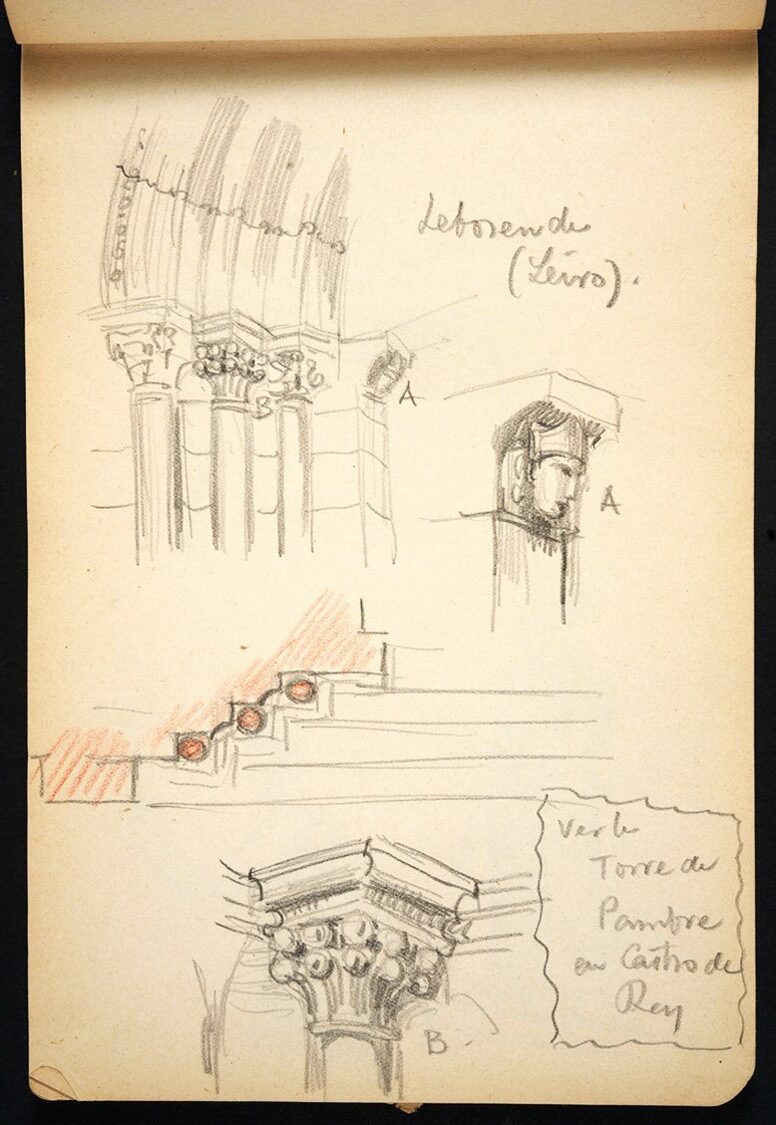 Lebosende
(Leiro).
A
B
A
B.
Ver la
Torre de
Pambre
en Castro de
Rey